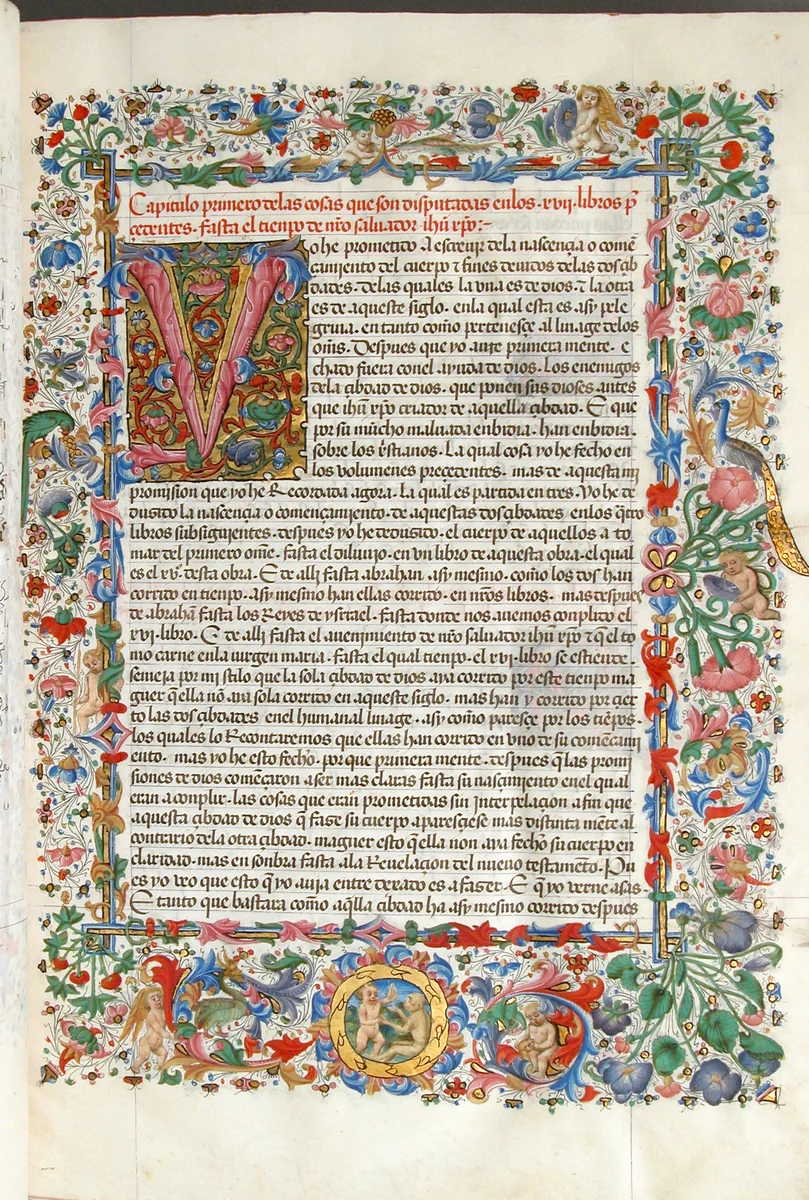 Capitulo primero delas cosas que son disputadas enlos .xvij. libros p̄
çedentes. fasta el tienpo de nr̃o saluador ihũ xp̃o:~
Vo he prometido a escreuir dela nasçençia o comẽ
çamiento del cuerpo τ fines deuidos delas dos çib
dades. delas quales la vna es de dios. τ la otra
es de aqueste siglo. enla qual esta es. asy pele
grina. en tanto com̃o pertenesçe al linage delos
om̃s. Despues que yo aure primera mente. e
chado fuera conel ayuda de dios. los enemigos
dela çibdad de dios. que ponen sus dioses antes
que ihũ xp̃o criador de aquella çibdad. E que
por su mucho maluada enbidia. han enbidia.
sobre los xp̃stianos. la qual cosa yo he fecho en
los volumenes preçedentes. mas de aquesta mj
promision que yo he Recordada agora. la qual es partida en tres. yo he de
dusido la nasçençia o començamiento. de aquestas dos çibdades enlos q̃tro
libros subsiguientes. despues yo he dedusido. el cuerpo de aquellos a to
mar del primero om̃e. fasta el diluuio. en vn libro de aquesta obra. el qual
es el xv.º desta obra. E de alli fasta abrahan. asy mesmo. com̃o los dos han
corrido en tienpo. asy mesmo han ellas corrido. en nr̃os libros. mas despues
de abrahã fasta los Reyes de ysrrael. fasta donde nos auemos conplido el
xvi. libro. E de alli fasta el auenimiento de nr̃o saluador ihũ xp̃o τ q̃ el to
mo carne enla uirgen maria. fasta el qual tienpo. el xvij. libro se estiende.
semeja por mi stilo que la sola çibdad de dios aya corrido por este tienpo ma
guer q̃ ella nõ aya sola corrido en aqueste siglo. mas han y corrido por çier
to las dos çibdades enel humanal linage. asy com̃o paresçe por los tiẽpos.
los quales lo Recontaremos que ellas han corrido en vno de su comẽçami
ento. mas yo he esto fecho. por que primera mente. despues q̃ las promi
siones de dios comẽçaron a ser mas claras fasta su nasçimiento enel qual
eran a conplir. las cosas que eran prometidas sin interpelaçion a fin que
aquesta çibdad de dios q̃ fase su cuerpo aparesçiese mas distinta mẽte al
contrario dela otra çibdad. maguer esto q̃ ella non aya fecho su cuerpo en
claridad. mas en sonbra fasta ala Reuelaçion del nueuo testamẽto. Pu
es yo veo que esto q̃ yo auia entre dexado es a faser. E q̃ yo verne asas.
E tanto que bastara com̃o aq̃lla çibdad ha asy mesmo corrido despues